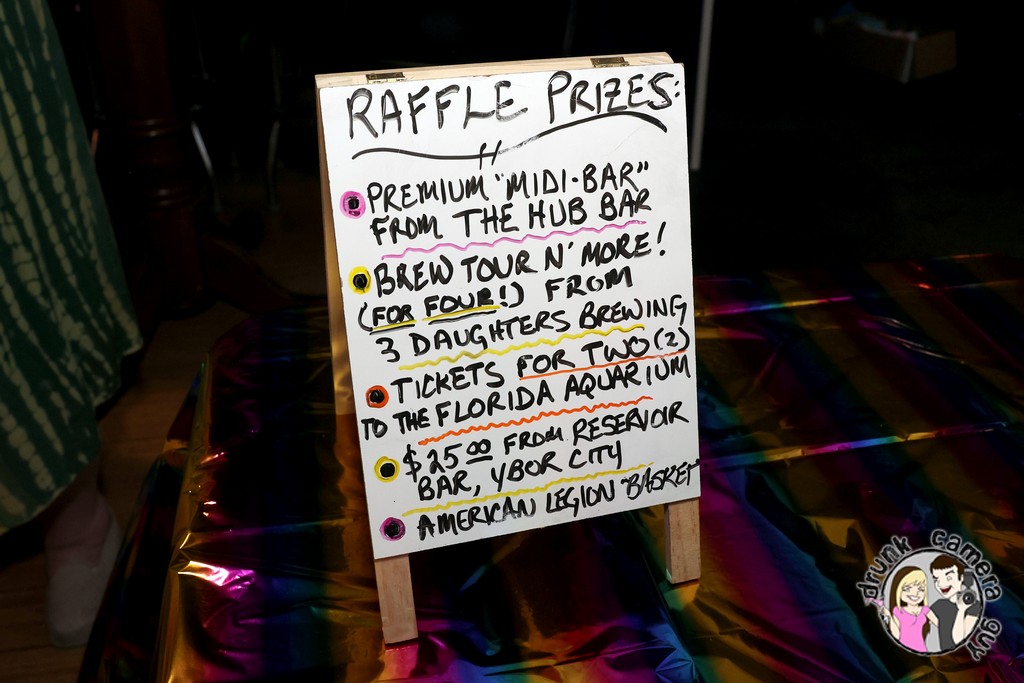 RAFFLE PRIZES:
PREMIUM "MIDI-BAR"
FROM THE HUB BAR
BREW TOUR N' MORE!
(FOR FOUR!) FROM
3 DAUGHTERS BREWING
TICKETS FOR TWO (2)
TO THE FLORIDA AQUARIUM
$25.00 FROM RESERVOIR
BAR, YBOR CITY
AMERICAN LEGION "BASKET"
drunk camera guy